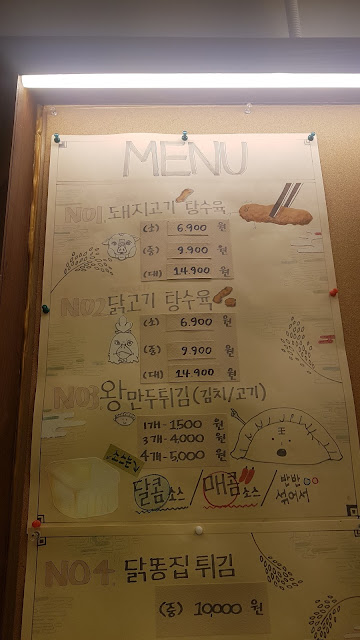 MENU
NO1 돼지고기 탕수육
(소) 6.900 원
(중) 9.900 원
(대) 14.900 원
NO2 닭고기 탕수육
(소) 6.900 원
(중) 9.900 원
(대) 14.900 원
NO3 왕만두튀김(김치/고기)
1개-1500 원
3개-4,000 원
4개-5,000 원
소스는
달콤소스/매콤소스/반반섞어서
NO4. 닭똥집 튀김
(중) 10,000 원